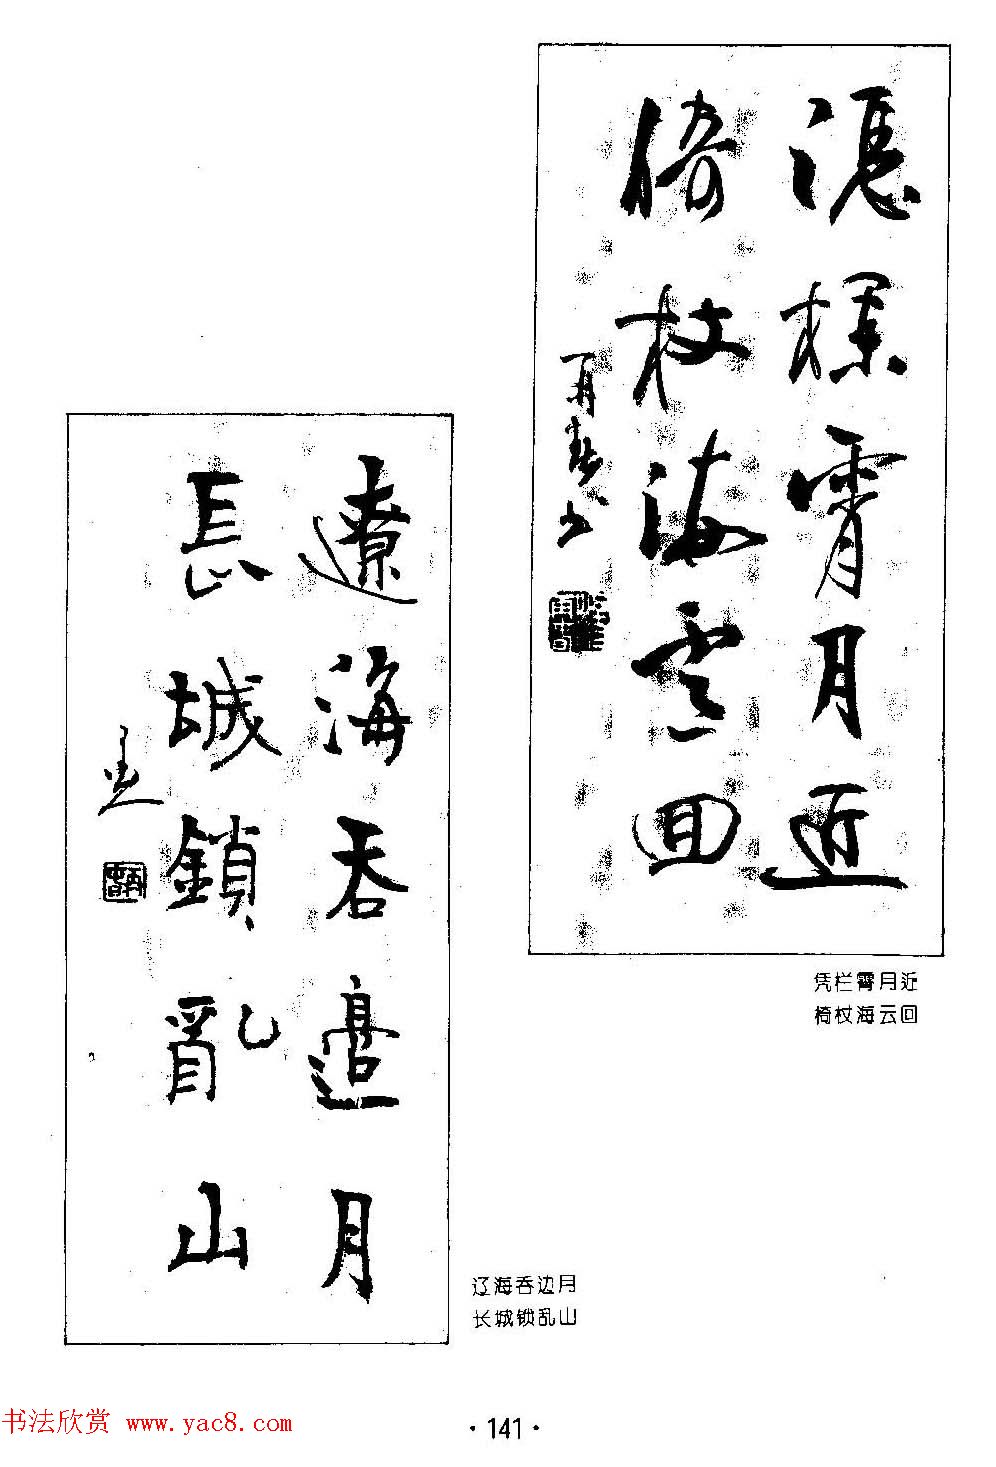 凭栏霄月近
倚杖海云回
再生书
凴欄霄月近
倚杖海雲回
辽海吞边月
长城锁乱山
遼海吞邊月
長城鎖亂山
书法欣赏 www.yac8.com
·141·